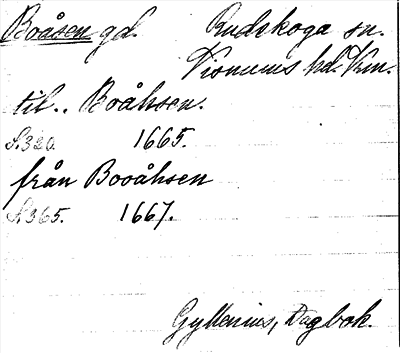 Boåsen gd. Rudskoga sn.
Visnums hd. Vrm.
till.. Boåhsen.
S.320. 1665.
från Booåhsen
S.365. 1667.
Gyllenius, Dagbok.